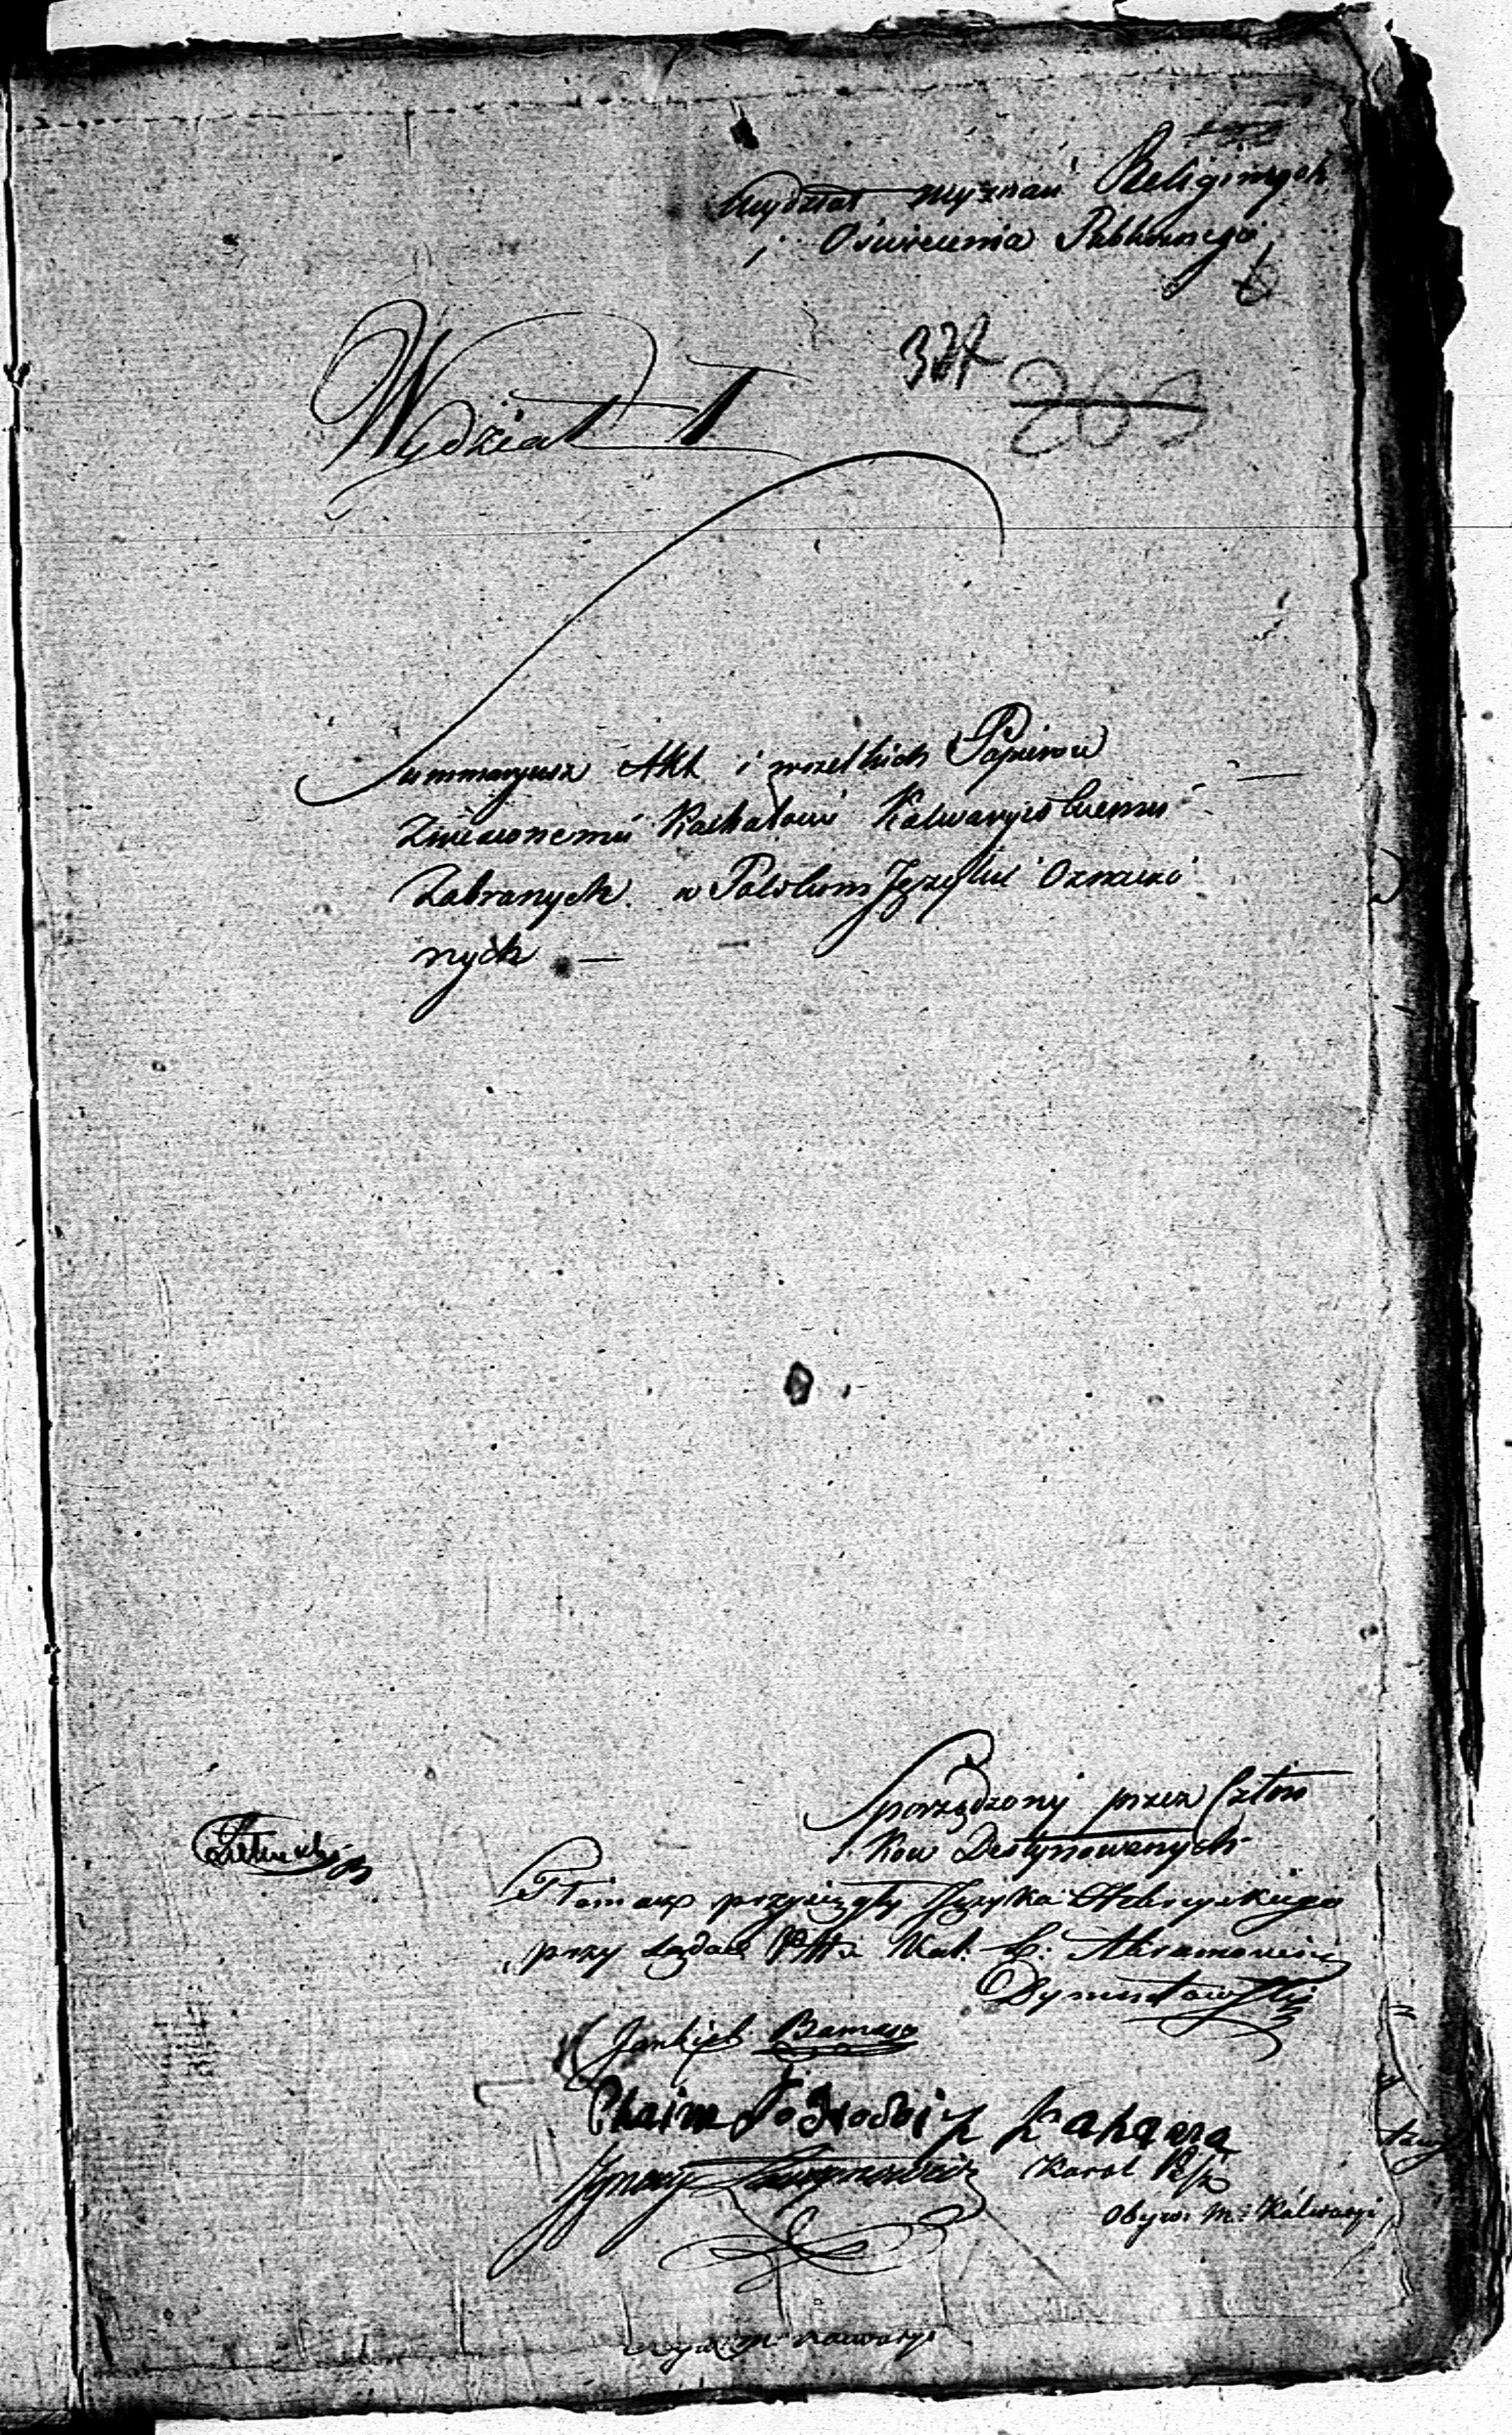 Wydział wyznań Religijnych
i Oświecenia Publicznego
Wydział I
263
Summaryusz Akt i wszelkich Papierow
Zniesionemu Kachałowi Kalwaryiskiemu
Zabranych w Polskim Języku Oznaczo
nych —
Sporządzony przez Człon
kow Destynowanych
Tłomacz przysięgły Języka Hebrayskiego
przy Sądach Wdz Kal. L: Abramowicz
Dymentowski
Jankiel
Chaim
Ignacy Karol
Obyw: M: Kalwaryi
M: Kalwaryi